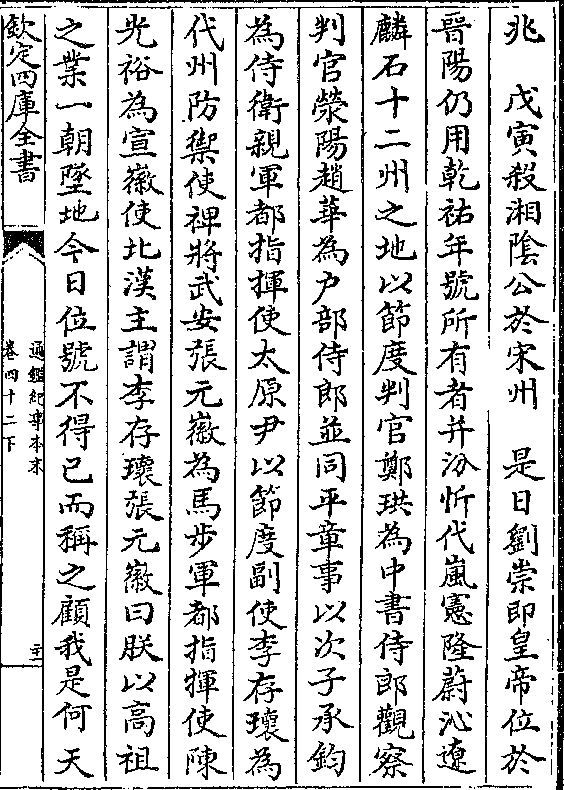 兆　戊寅殺湘陰公於宋州　是日劉崇即皇帝位於
晉陽仍用乾祐年號所有者并汾忻代嵐憲隆蔚沁遼
麟石十二州之地以節度判官鄭珙為中書侍郎觀察
判官滎陽趙華為户部侍郎並同平章事以次子承鈞
為侍衛親軍都指揮使太原尹以節度副使李存瓌為
代州防禦使裨將武安張元徽為馬步軍都指揮使陳
光裕為宣徽使北漢主謂李存瓌張元徽曰朕以高祖
之業一朝墜地今日位號不得已而稱之顧我是何天
欽定四庫全書
通鑑紀事本末
卷四十二下